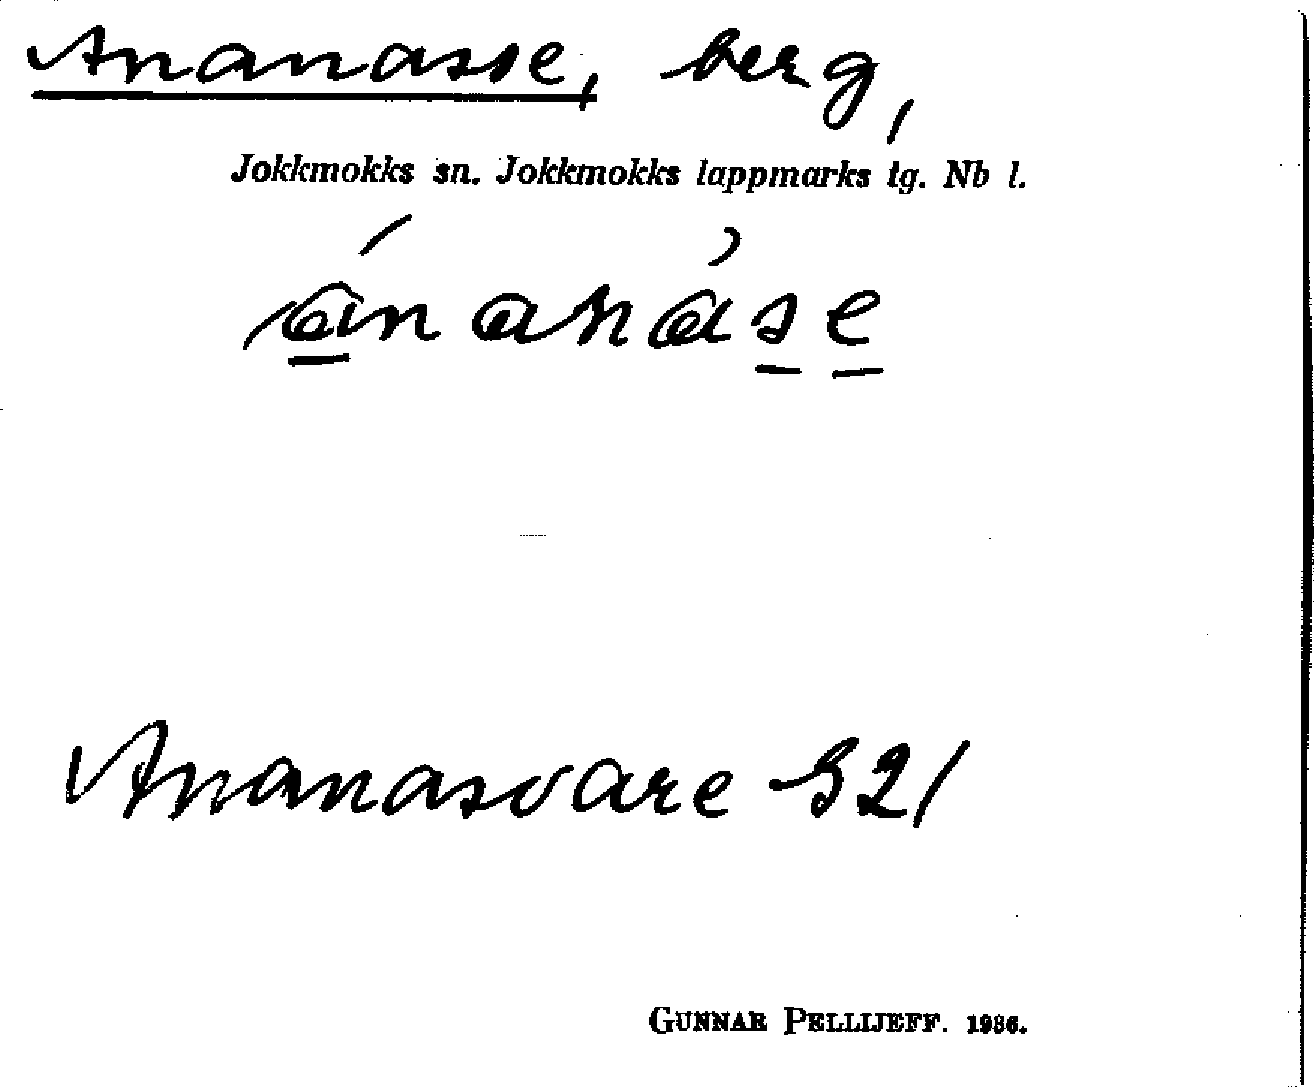 Ananasse, berg,
Jokkmokks sn. Jokkmokks lappmarks tg. Nb l.
Ananasvare 321
GUNNAR PELLIJEFF. 1936.